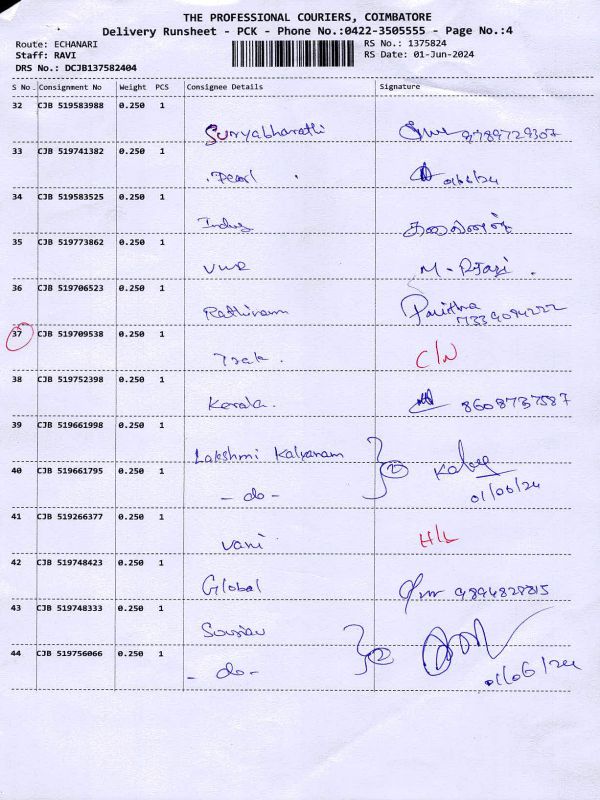 THE PROFESSIONAL COURIERS, COIMBATORE
Delivery Runsheet - PCK - Phone No.:0422-3505555 - Page No.:4
Route: ECHANARI
Staff: RAVI
DRS No.: DCJB137582404
RS No.: 1375824
RS Date: 01-Jun-2024
S No. Consignment No Weight PCS Consignee Details Signature
32 CJB 519583988 0.250 1
Suryabharathi 9789729307
33 CJB 519741382 0.250 1
Pearl 01/06/24
34 CJB 519583525 0.250 1
Indus
35 CJB 519773862 0.250 1
VWR M-
36 CJB 519706523 0.250 1
Rathinam Pavithra
7339094222
37 CJB 519709538 0.250 1
Trak. C/N
38 CJB 519752398 0.250 1
Kerala. 8608737587
39 CJB 519661998 0.250 1
Lakshmi Kalyanam
40 CJB 519661795 0.250 1
- do - 2 01/06/24
41 CJB 519266377 0.250 1
Vani H/L
42 CJB 519748423 0.250 1
Global 9894828815
43 CJB 519748333 0.250 1
44 CJB 519756066 0.250 1
- do - 2 01/06/24